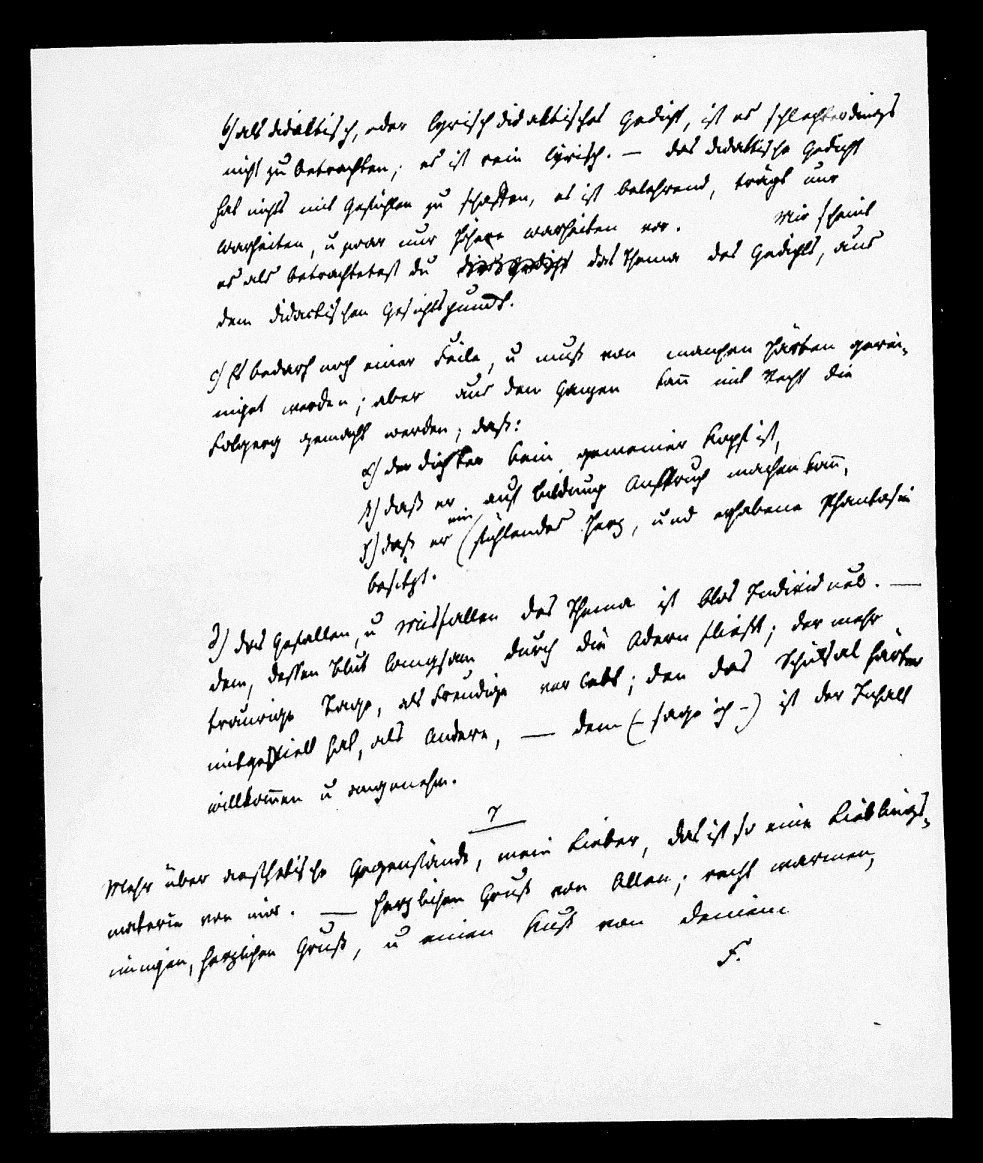 b) als didaktisch, oder lyrisch didaktisches Gedicht, ist es schlechterdings
nicht zu betrachten; es ist rein lyrisch. — das didaktische Gedicht
hat nichts mit Gefühlen zu schaffen, es ist belehrend, trägt nur
Warheiten, u zwar nur höhere Warheiten vor. Mir scheint
es als betrachtetest du das Thema des Gedichts, aus
dem didactischen Gesichtspunct.
c) Es bedarf noch einer Feile, u muß von manchen Härten gerei-
niget werden; aber aus dem Ganzen kan̄ mit Recht die
Folgerg gemacht werden; daß:
α) der Dichter kein gemeiner Kopf ist,
β) daß er auf Bildung Anspruch machen kan̄,
γ) daß er ein fühlendes Herz, und erhabene Phantasie
besitzt.
d) das Gefallen, u Misfallen des Thema ist blos Individuel. —
dem, dessen Blut langsam durch die Adern fließt; der mehr
traurige Tage, als Freudige verlebt; den das Schiksal härter
mitgespielt hat, als Andere, — dem (– sage ich –) ist der Inhalt
willkom̄en u angenehm.
Mehr über aesthetische Gegenstände, mein Lieber, das ist so eine Lieblings-
materie von mir. — Herzlichen Gruß von Allen; recht warmen,
innigen, herzlichen Gruß, u einen Kuß von Deinem
F.